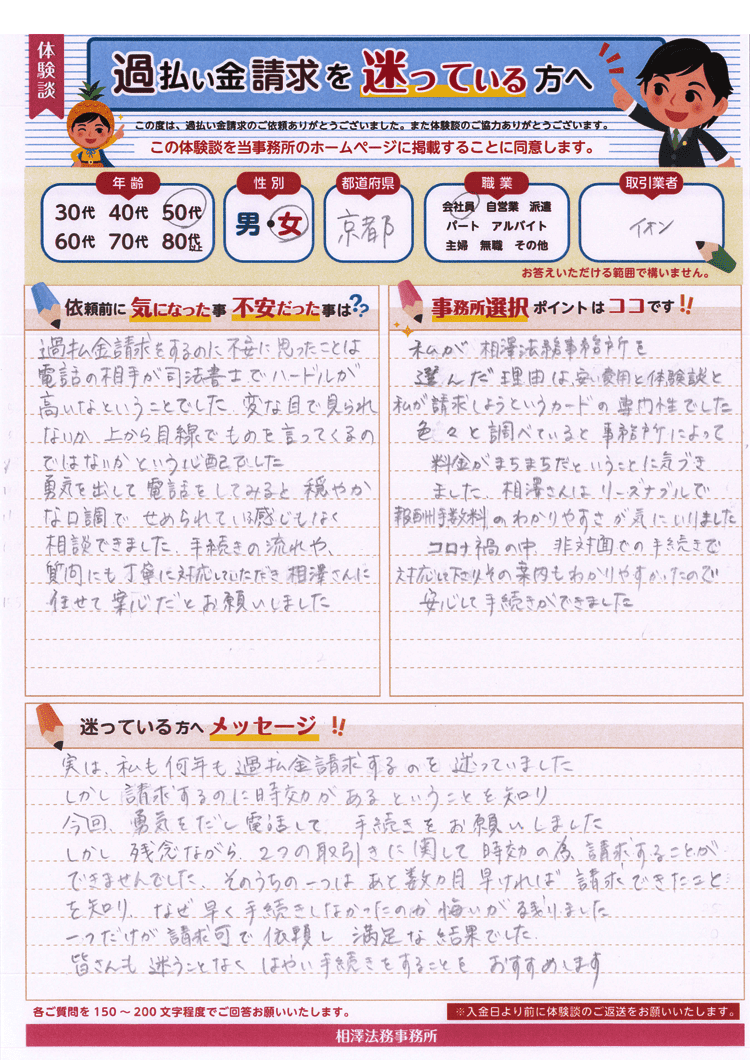 体験談
過払い金請求を迷っている方へ
この度は、過払い金請求のご依頼ありがとうございました。また体験談のご協力ありがとうございます。
この体験談を当事務所のホームページに掲載することに同意します。
年齢
30代 40代 50代
60代 70代 80代以上
性別
男・女
都道府県
京都
職業
会社員 自営業 派遣
パート アルバイト
主婦 無職 その他
取引業者
イオン
お答えいただける範囲で構いません。
依頼前に気になった事 不安だった事は??
過払金請求をするのに不安に思ったことは
電話の相手が司法書士でハードルが
高いなということでした。変な目で見られ
ないか、上から目線でものを言ってくるの
ではないかという心配でした
勇気を出して電話をしてみると穏やか
な口調でせめられている感じもなく
相談できました。手続きの流れや、
質問にも丁寧に対応していただき相澤さんに
任せて安心だとお願いしました
事務所選択ポイントはココです!!
私が相澤法務事務所を
選んだ理由は、安い費用と体験談と
私が請求しようというカードの専門性でした
色々と調べていると事務所によって
料金がまちまちだということに気づき
ました。相澤さんはリーズナブルで
報酬手数料のわかりやすさが気にいりました
コロナ禍の中、非対面での手続きで
対応して下さりその案内もわかりやすかったので
安心して手続きができました
迷っている方へメッセージ!!
実は、私も何年も過払金請求するのを迷っていました
しかし請求するのに時効があるということを知り
今回、勇気をだし電話して手続きをお願いしました
しかし残念ながら、2つの取引きに関して時効の為、請求することが
できませんでした。そのうちの一つはあと数カ月早ければ請求できたこと
を知り、なぜ早く手続きしなかったのか悔いが残りました
一つだけが請求可で依頼し満足な結果でした
皆さんも迷うことなくはやい手続きをすることをおすすめします
各ご質問を150～200文字程度でご回答お願いいたします。
※入金日より前に体験談のご返送をお願いいたします。
相澤法務事務所